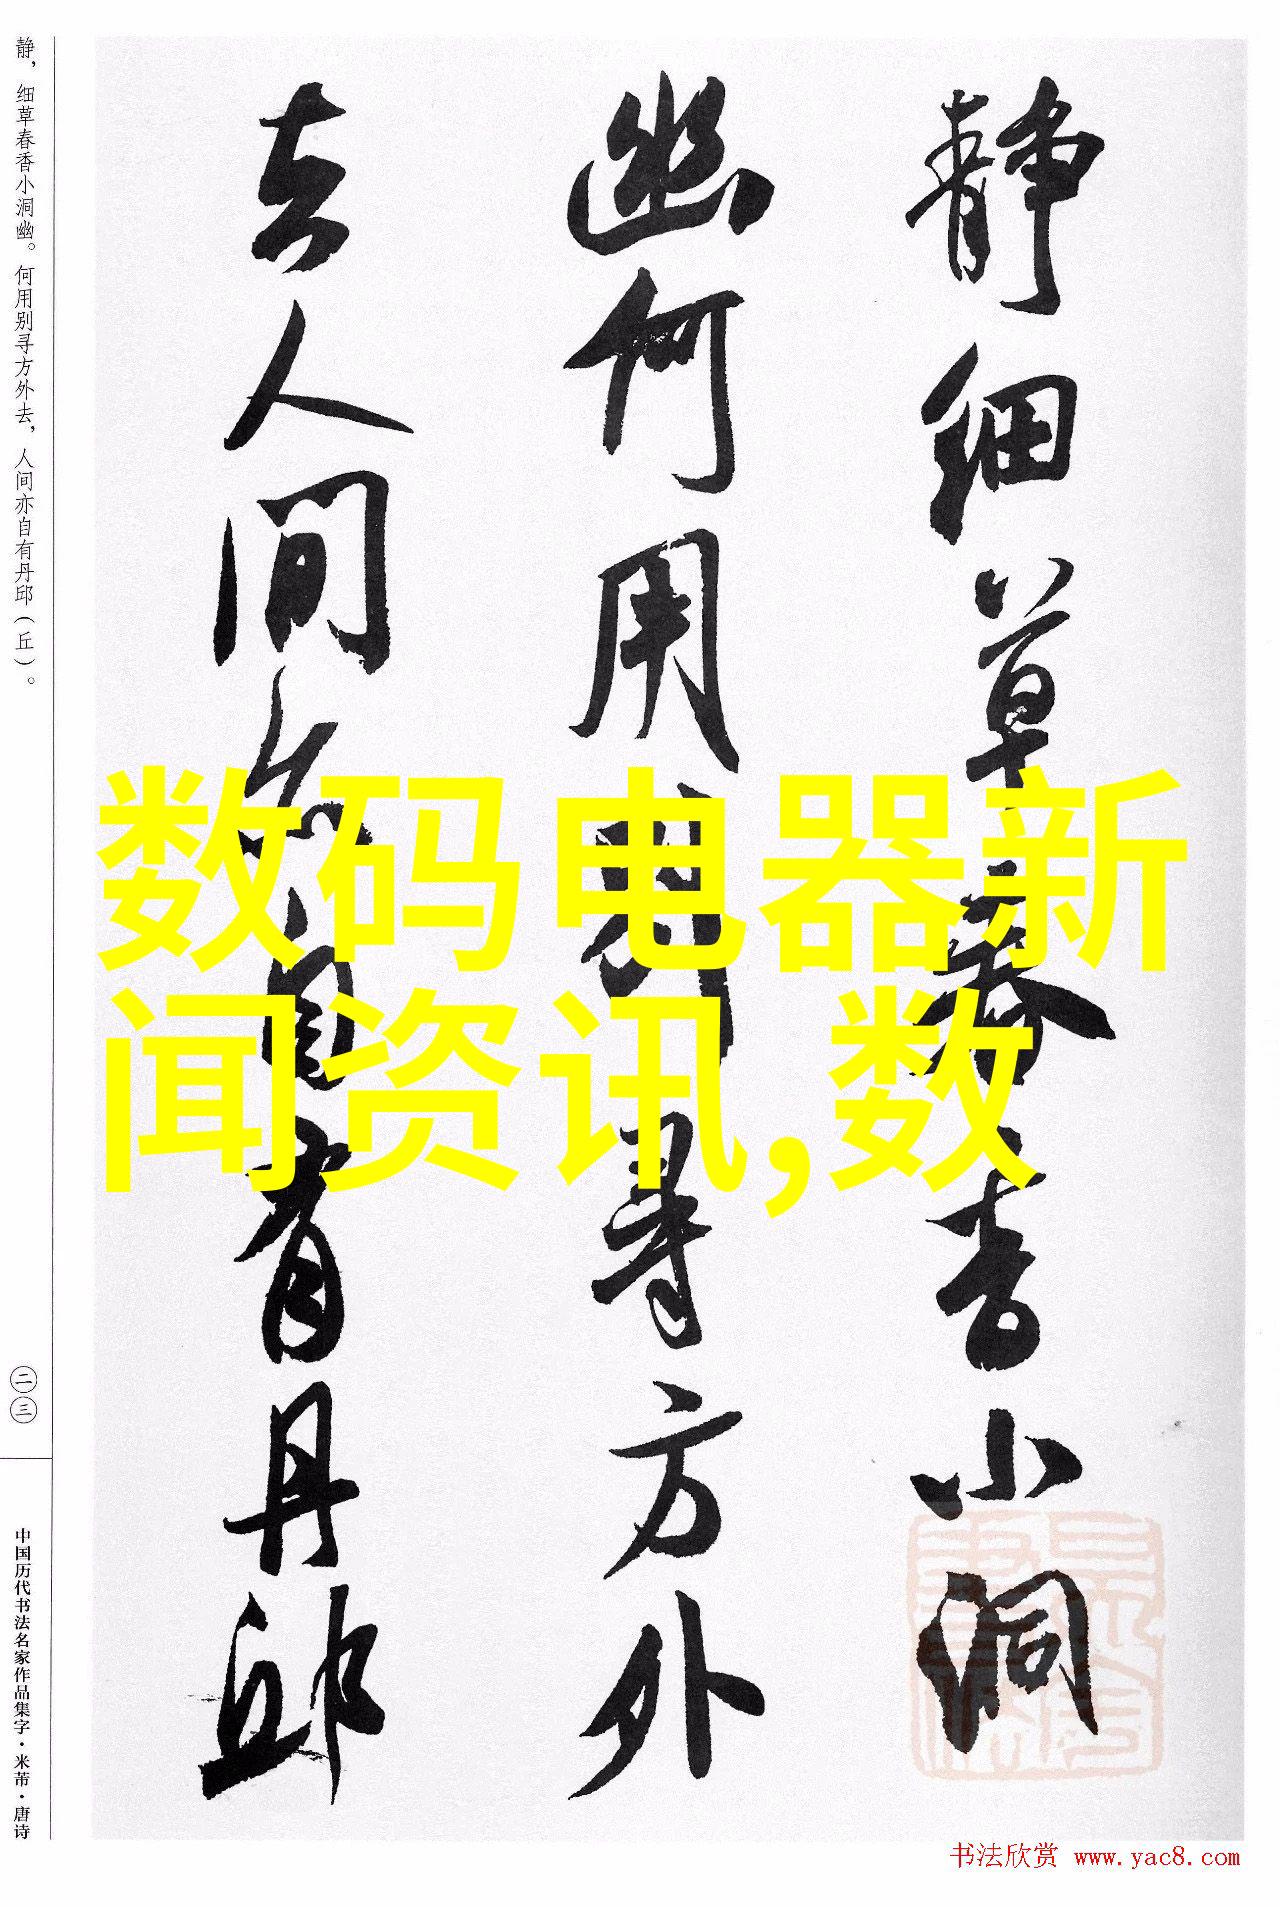 静细草春香小洞
幽何用别寻方外
去人间亦自有丹邱
数码电器新
闻资讯,数
静，细草春香小洞幽。何用别寻方外去，人间亦自有丹邱（丘）。
二三
中国历代书法名家作品集字·米芾·唐诗
书法欣赏 www.yac8.com